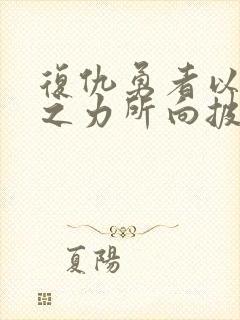 復仇勇者以
之力所向披
夏陽